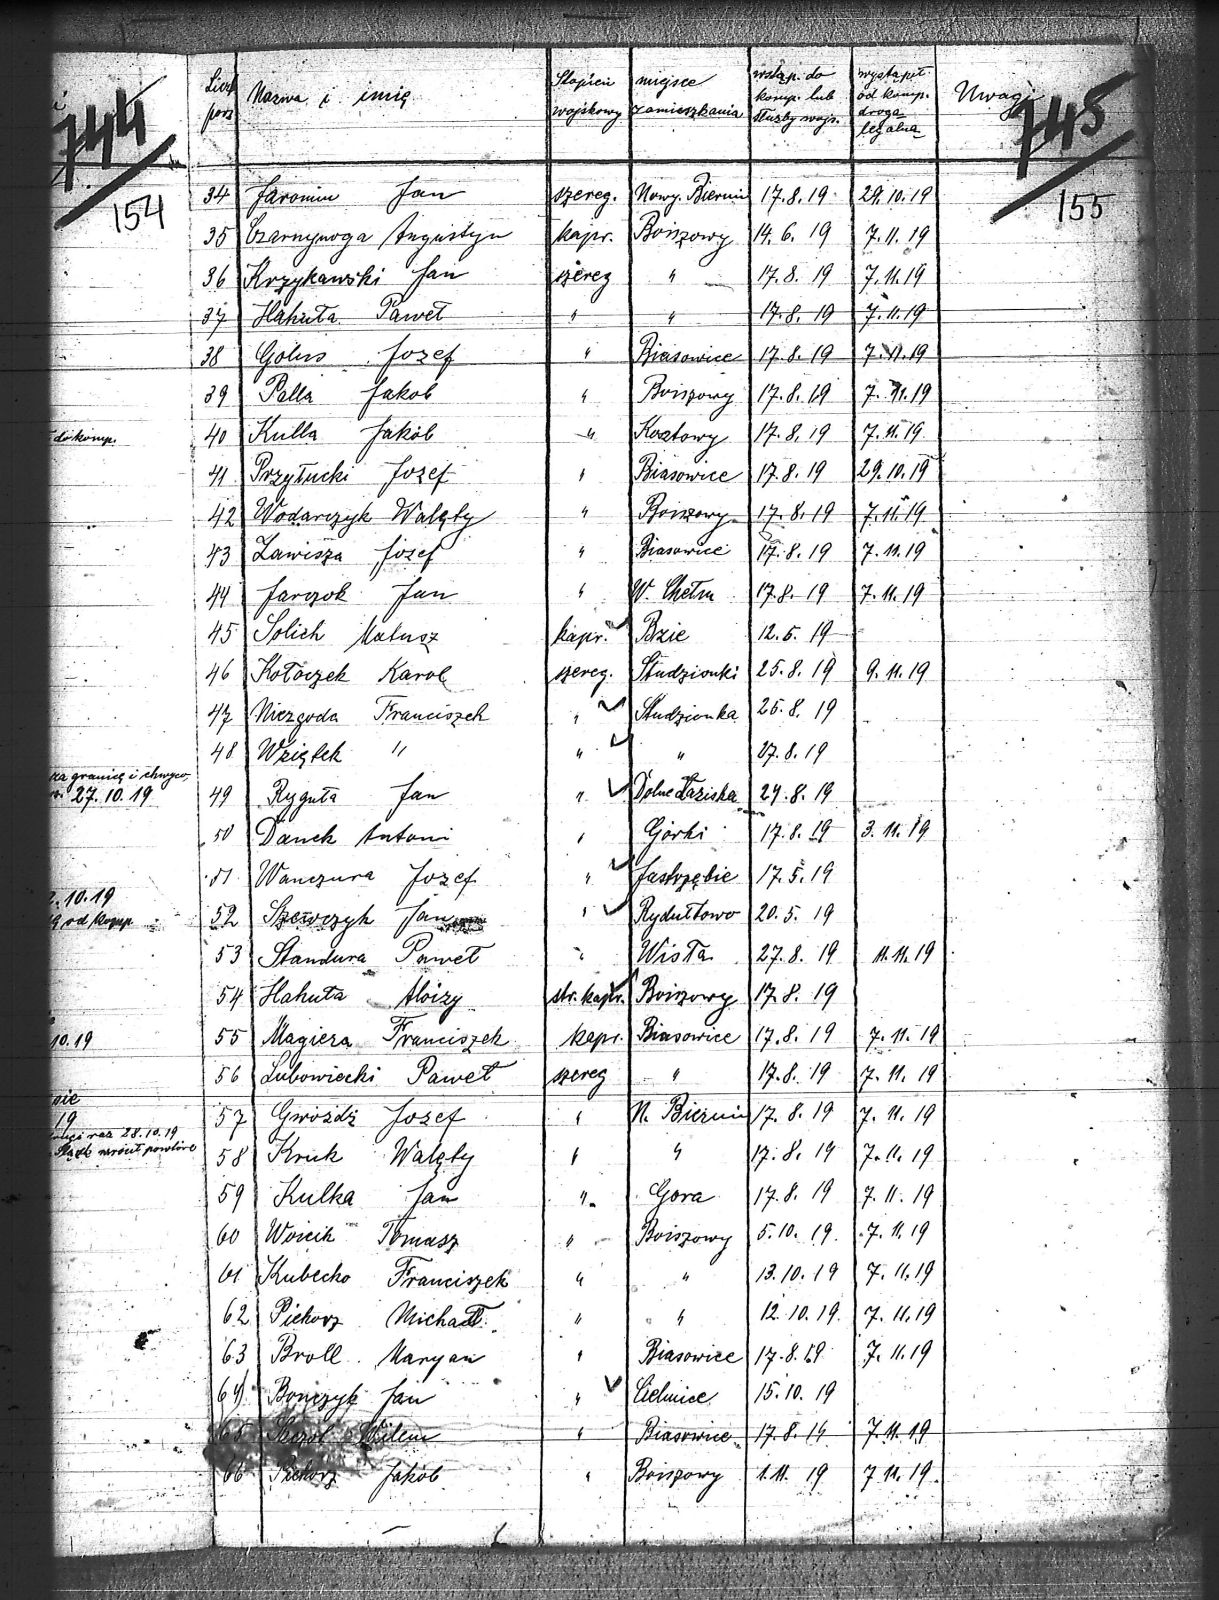 744
154
do komp.
za granicę i chwyco,
27.10.19
2.10.19
19 od komp.
10.19
sie
19
raz 28.10.19
wrócił powtóre
Licz. porz. Nazwa i imię Stopień wojskowy miejsce zamieszkania wstąp. do komp. lub służby wojs. wystąpił od komp. drogą legalną Uwagi
745
155
34 Jaromin Jan szereg. Nowy. Bieruń 17.8.19 29.10.19
35 Czarnynoga Augustyn kapr. Boiszowy 14.6.19 7.11.19
36 Krzykawski Jan szereg " 17.8.19 7.11.19
37 Hahuła Paweł " " 17.8.19 7.11.19
38 Golus Jozef " Biasowice 17.8.19 7.11.19
39 Palla Jakob " Boiszowy 17.8.19 7.11.19
40 Kulla Jakób " Kostowy 17.8.19 7.11.19
41 Przyłucki Jozef " Biasowice 17.8.19 29.10.19
42 Wodarczyk Walęty " Boiszowy 17.8.19 7.11.19
43 Zawisza Józef " Biasowice 17.8.19 7.11.19
44 Jarczok Jan " W. Chełm 17.8.19 7.11.19
45 Solich Matusz kapr. Bzie 12.5.19
46 Kołoczek Karol szereg. Studzionki 25.8.19 9.11.19
47 Niezgoda Franciszek " Studzionka 25.8.19
48 Wziętek " " " 27.8.19
49 Ryguła Jan " Dolne Łaziska 29.8.19
50 Danch Antoni " Górki 17.8.19 3.11.19
51 Wanczura Jozef " Jastrzębie 17.5.19
52 Szewczyk Jan " Rydułtowo 20.5.19
53 Standura Paweł " Wisła 27.8.19 11.11.19
54 Hahuła Alóizy str. kapr. Boiszowy 17.8.19
55 Magiera Franciszek kapr. Biasowice 17.8.19 7.11.19
56 Lubowiecki Paweł szereg " 17.8.19 7.11.19
57 Gwóźdź Jozef " N. Bieruń 17.8.19 7.11.19
58 Kruk Walęty " " 17.8.19 7.11.19
59 Kulka Jan " Gora 17.8.19 7.11.19
60 Woicik Tomasz " Boiszowy 5.10.19 7.11.19
61 Kubecko Franciszek " " 13.10.19 7.11.19
62 Piekorz Michael " " 12.10.19 7.11.19
63 Broll Maryan " Biasowice 17.8.19 7.11.19
64 Bonczyk Jan " Cielmice 15.10.19
65 Wilem " Biasowice 17.8.19 7.11.19
66 Piekorz Jakób " Boiszowy 1.11.19 7.11.19